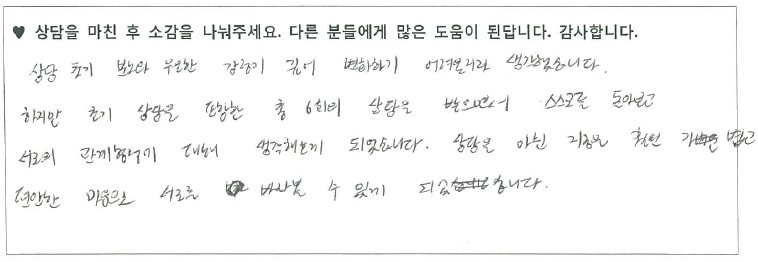 ♥ 상담을 마친 후 소감을 나눠주세요. 다른 분들에게 많은 도움이 된답니다. 감사합니다.
상담 초기 분노와 우울한 감정이 깊어 변화하기 어려울거라 생각했습니다.
하지만 초기 상담을 포함한 총 6회의 상담을 받으면서 스스로를 돌아보고
서로의 관계형성에 대해 생각해보게 되었습니다. 상담을 마친 지금은 훨씬 가볍고
편안한 마음으로 서로를 바라볼 수 있게 되었습니다.